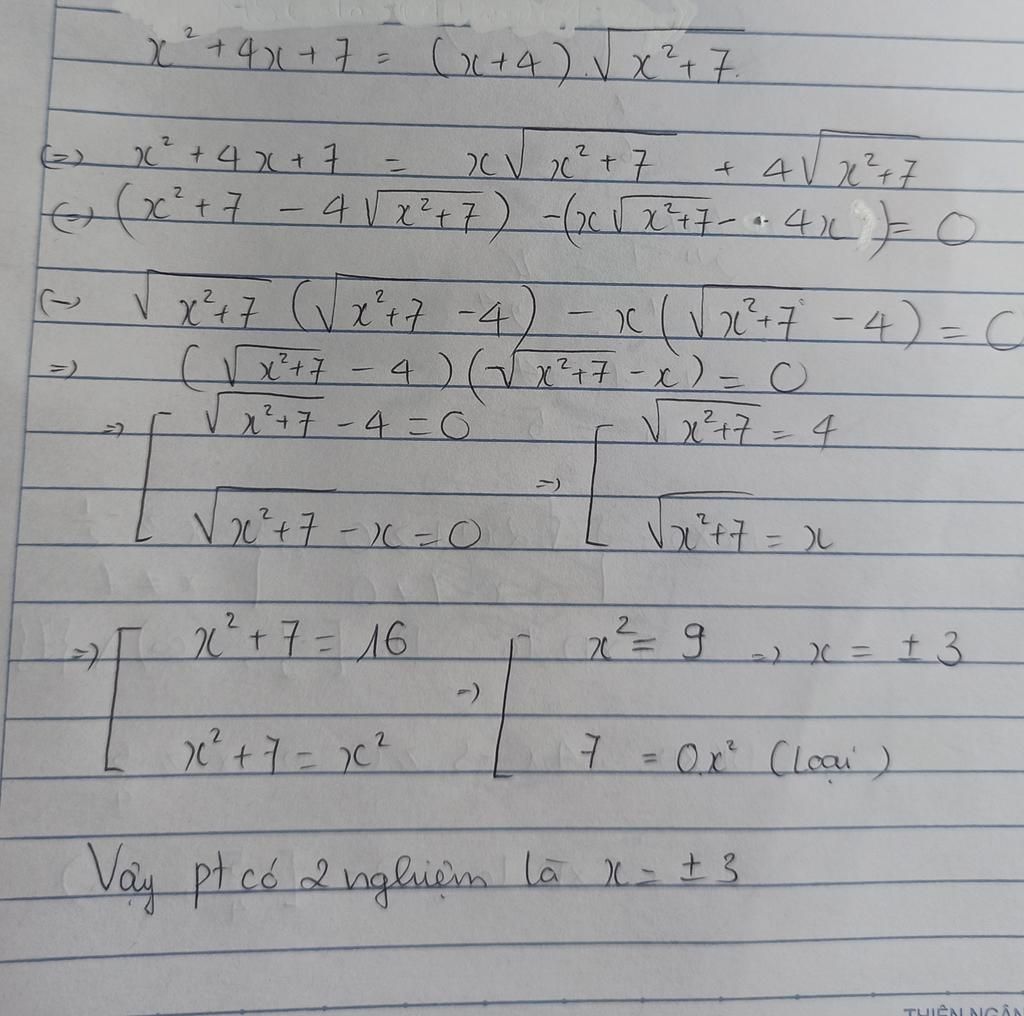 x² + 4x + 7 = (x+4).√(x²+7)
(=) x² + 4x + 7 = x√(x²+7) + 4√(x²+7)
(=) (x² + 7 - 4√(x²+7)) - (x√(x²+7) - 4x) = 0
(=) √(x²+7) (√(x²+7) - 4) - x(√(x²+7) - 4) = 0
=) (√(x²+7) - 4)(√(x²+7) - x) = 0
=) [ √(x²+7) - 4 = 0 =) [ √(x²+7) = 4
√(x²+7) - x = 0 √(x²+7) = x
=) [ x² + 7 = 16 =) [ x² = 9 =) x = ± 3
x² + 7 = x² 7 = 0.x² (loại)
Vậy pt có 2 nghiệm là x = ± 3
THIÊN NGÂN